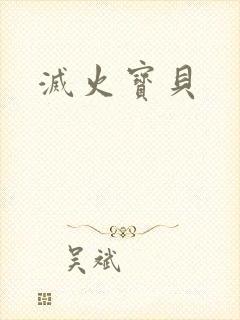 滅火寶貝
吴斌